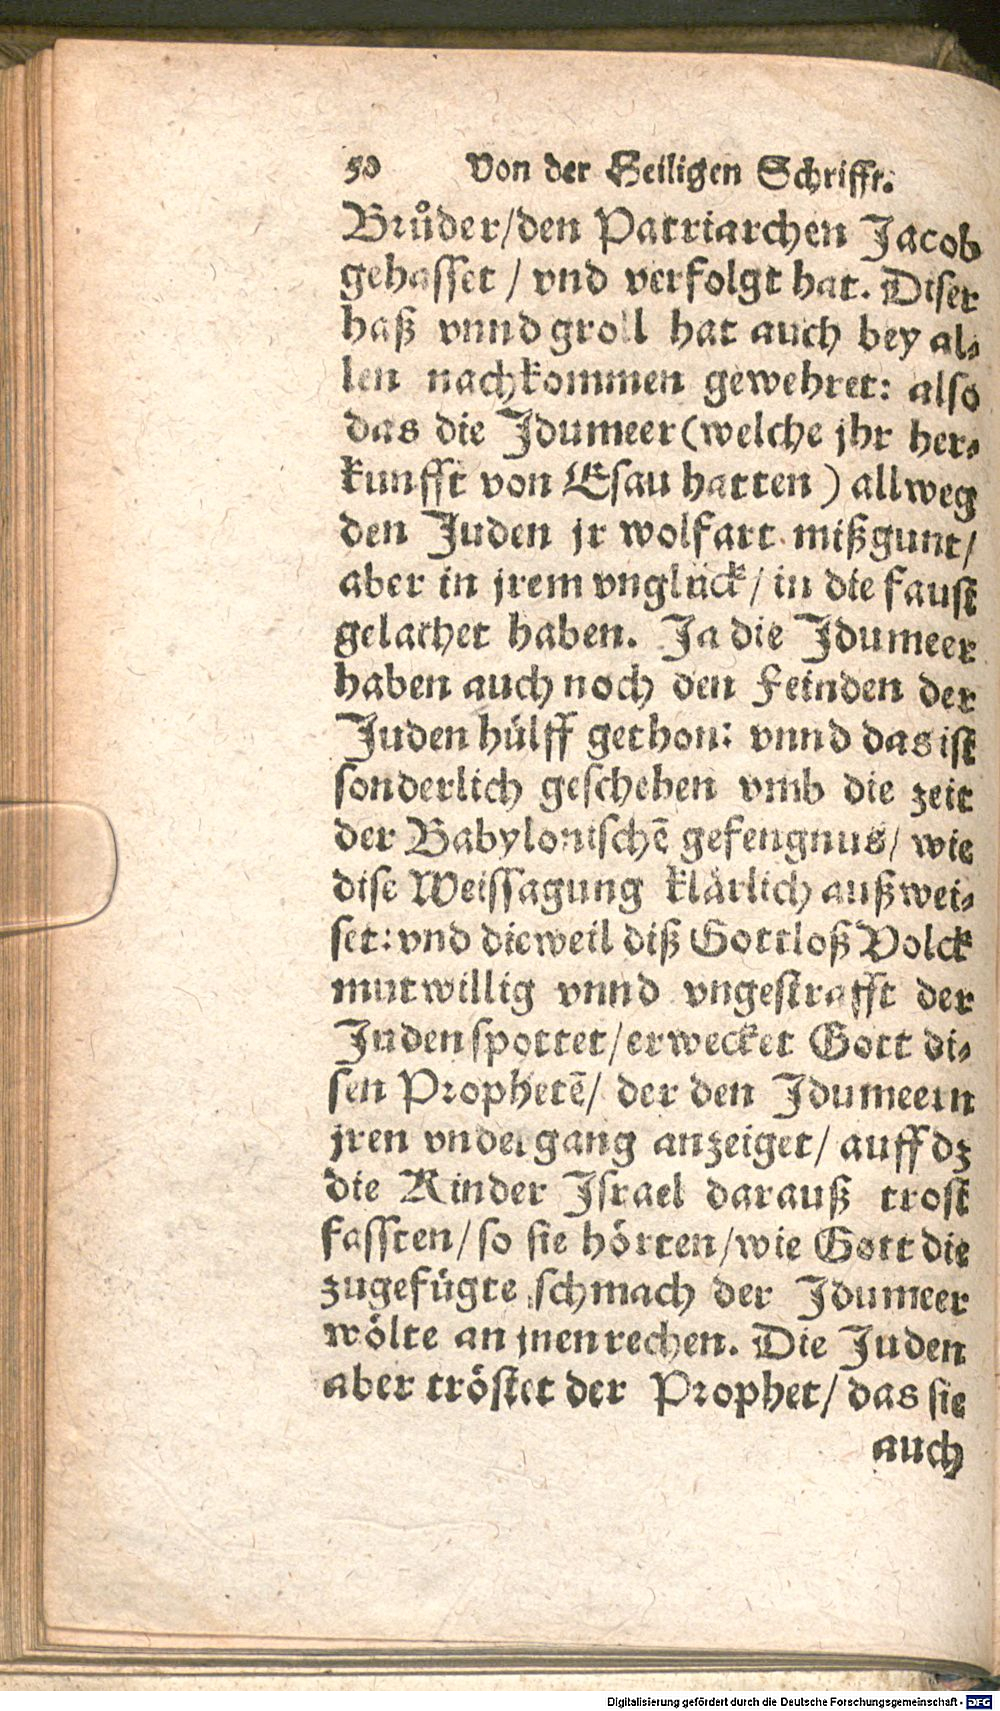 50 Von der Heiligen Schrifft.
Bruͤder/den Patriarchen Jacob
gehasset / vnd verfolgt hat. Diser
haß vnnd groll hat auch bey al⸗
len nachkommen gewehret: also
das die Idumeer (welche jhr her⸗
kunfft von Esau hatten) allweg
den Juden jr wolfart mißgunt/
aber in jrem vnglück/ in die faust
gelachet haben. Ja die Idumeer
haben auch noch den Feinden der
Juden hülff gethon: vnnd das ist
sonderlich geschehen vmb die zeit
der Babylonischē gefengnus/ wie
dise Weissagung klärlich außwei⸗
set: vnd dieweil diß Gottloß Volck
mutwillig vnnd vngestrafft der
Juden spottet/erwecket Gott di⸗
sen Prophetē/ der den Idumeern
jren vndergang anzeiget/ auff dz
die Kinder Israel darauß trost
fassten/so sie hörten/wie Gott die
zugefügte schmach der Idumeer
wölte an jnen rechen. Die Juden
aber tröstet der Prophet/ das sie
auch
Digitalisierung gefördert durch die Deutsche Forschungsgemeinschaft - DFG